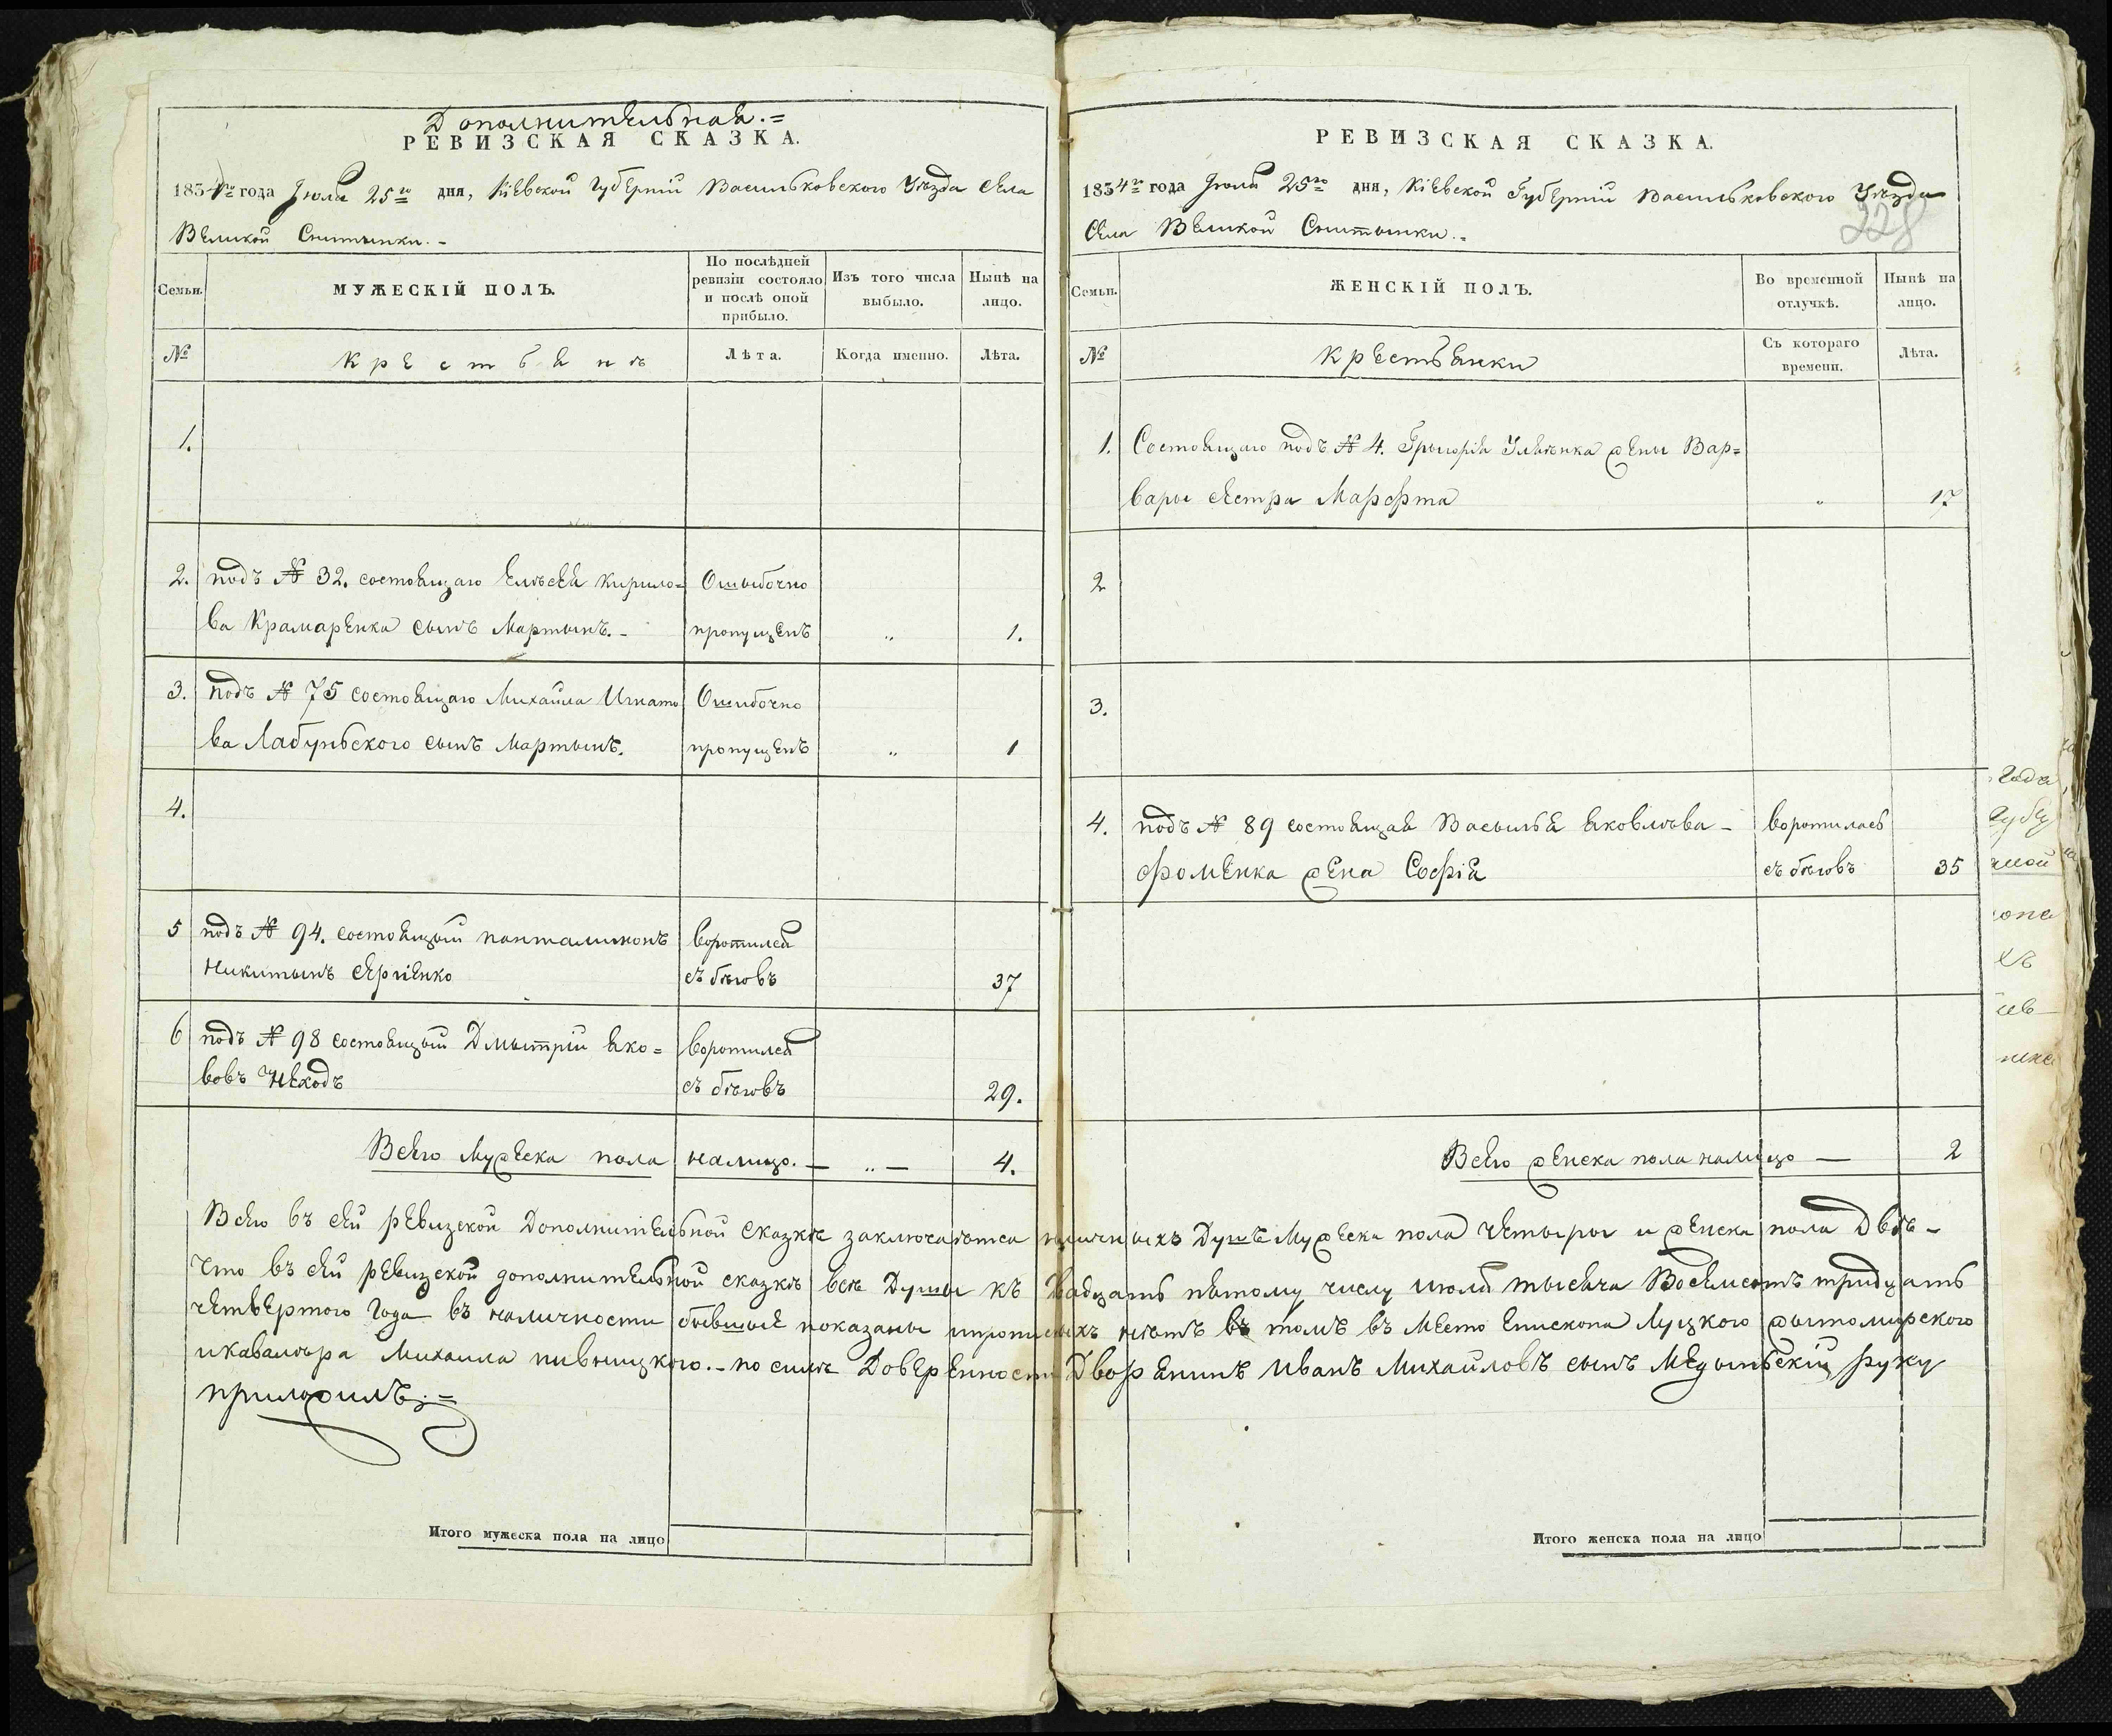 Дополнительная.=
РЕВИЗСКАЯ СКАЗКА.
1834го года Іюля 25го дня, Кіевской Губерніи Васильковского Уѣзда села
Великой Снитынки.-
Семьи.
МУЖЕСКІЙ ПОЛЪ.
По послѣдней ревизіи состояло и послѣ оной прибыло.
Изъ того числа выбыло.
Нынѣ на лицо.
№
Крестьянъ
Лѣта.
Когда именно.
Лѣта.
1.
2. подъ № 32. состоящаго Елисея Кирило= Ошыбочно
ва Крамаренка сынъ Мартынъ.- пропущенъ „ 1.
3. подъ № 75 состоящаго Михайла Игнато Ошибочно
ва Лабуньского сынъ Мартынъ. пропущенъ „ 1
4.
5 подъ № 94. состоящый Панталимонъ воротился
Никитынъ Сергіенко съ бѣговъ 37
6 подъ № 98 состоящый Дмытрій Яко= воротился
вовъ Неходъ съ бѣговъ 29.
Всего Мужеска пола налицо. — „ — 4.
РЕВИЗСКАЯ СКАЗКА.
1834го года Іюля 25го дня, Кіевской Губерніи Васильковского Уѣзда
228
Села Великой Снитынки.-
Семьи.
ЖЕНСКІЙ ПОЛЪ.
Во временной отлучкѣ.
Нынѣ на лицо.
№
Крестьянки
Съ котораго времени.
Лѣта.
1. Состоящаго подъ № 4. Грыгорія жены Вар=
вары сестра Марфта „ 17
2
3.
4. подъ № 89 состоящая Васылья Яковлева - воротилась
Фоменка жена Софія съ бѣговъ 35
Всего женска пола налицо — 2
Всего въ сей ревизской Дополнительной сказкѣ заключается наличныхъ Душъ Мужеска пола четыры и женска пола Двѣ -
Что въ сей ревизской дополнительной сказкѣ всѣ Душы къ Двадцать пятому числу июля тысяча Восемсотъ тридцать
четвертого Года въ наличности бывшые показаны ипрописныхъ нѣтъ въ томъ въ Место Епископа Луцкого Жытомирского
икавалера Михаила пивницкого.- по силѣ Доверенности Дворянинъ Иванъ Михайловъ сынъ руку
приложилъ.=
Итого мужеска пола на лицо
Итого женска пола на лицо